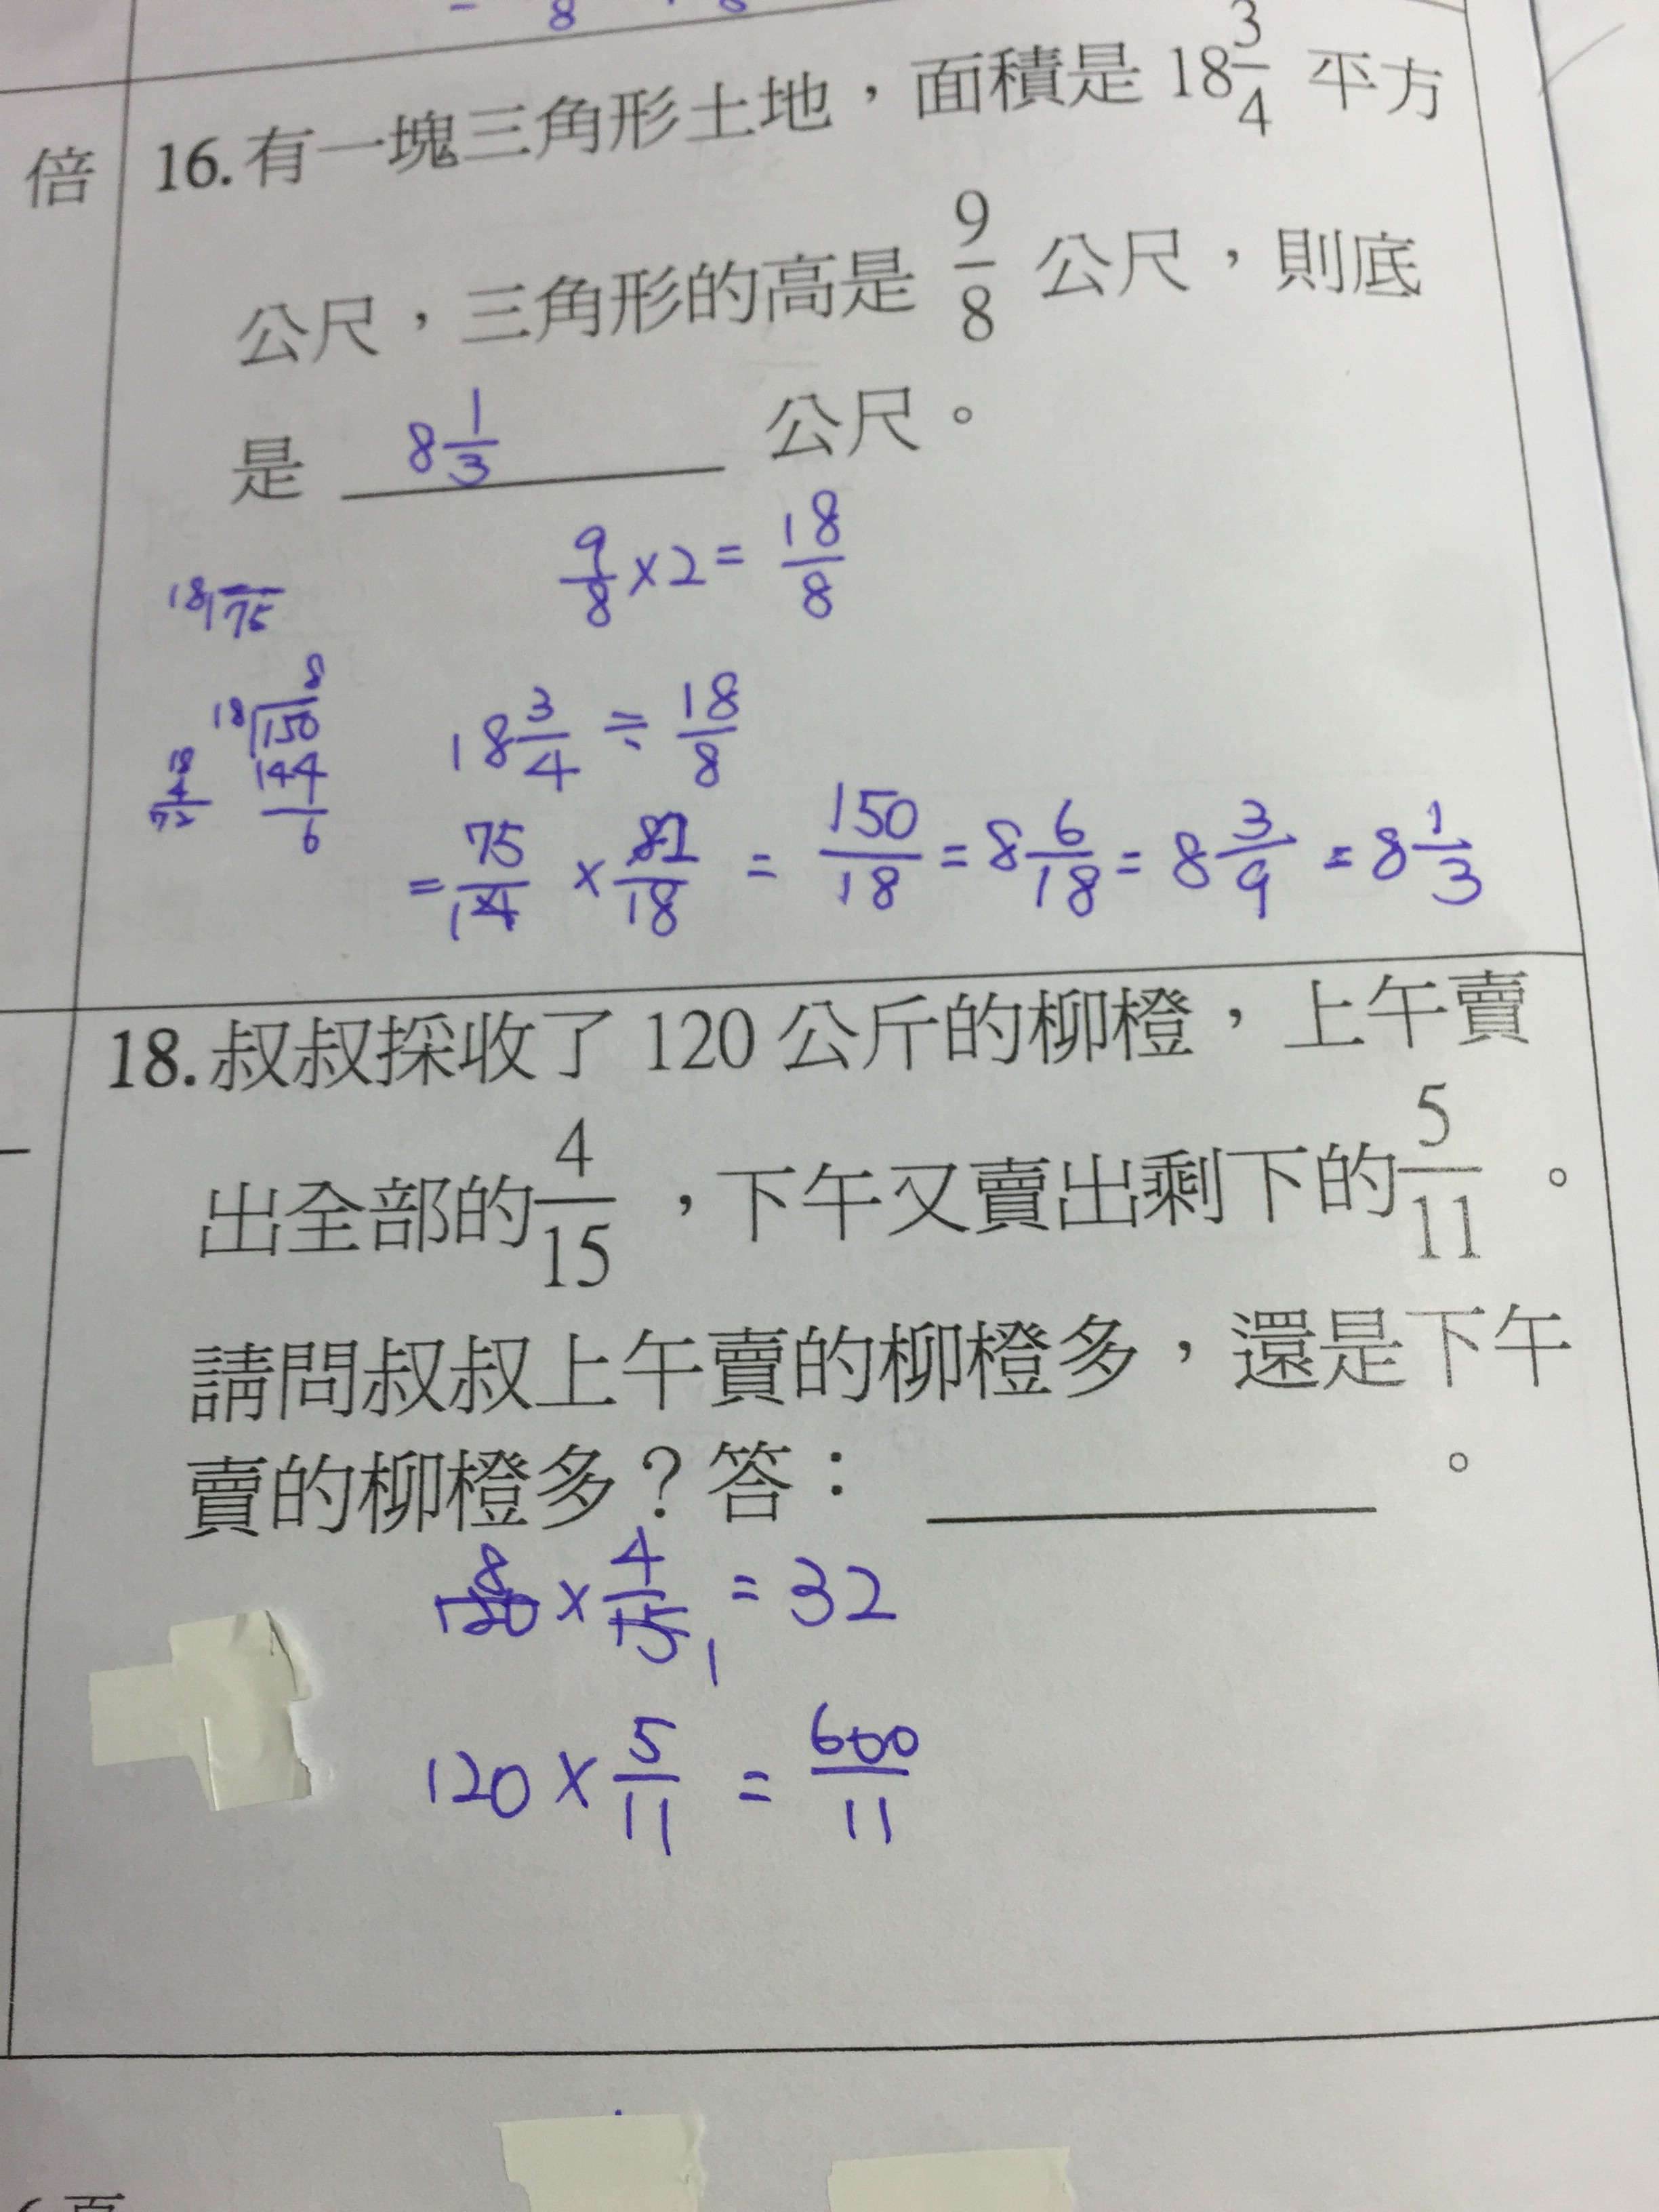 倍
16.有一塊三角形土地，面積是 18 3/4 平方
公尺，三角形的高是 9/8 公尺，則底
是 8 1/3 公尺。
9/8 × 2 = 18/8
18 75
18 3/4 ÷ 18/8
8
18 150
144
6
= 75/14 × 82/18 = 150/18 = 8 6/18 = 8 3/9 = 8 1/3
18.叔叔採收了 120 公斤的柳橙，上午賣
出全部的 4/15，下午又賣出剩下的 5/11。
請問叔叔上午賣的柳橙多，還是下午
賣的柳橙多？答：。
8
120 × 4/15 = 32
1
120 × 5/11 = 600/11
頁